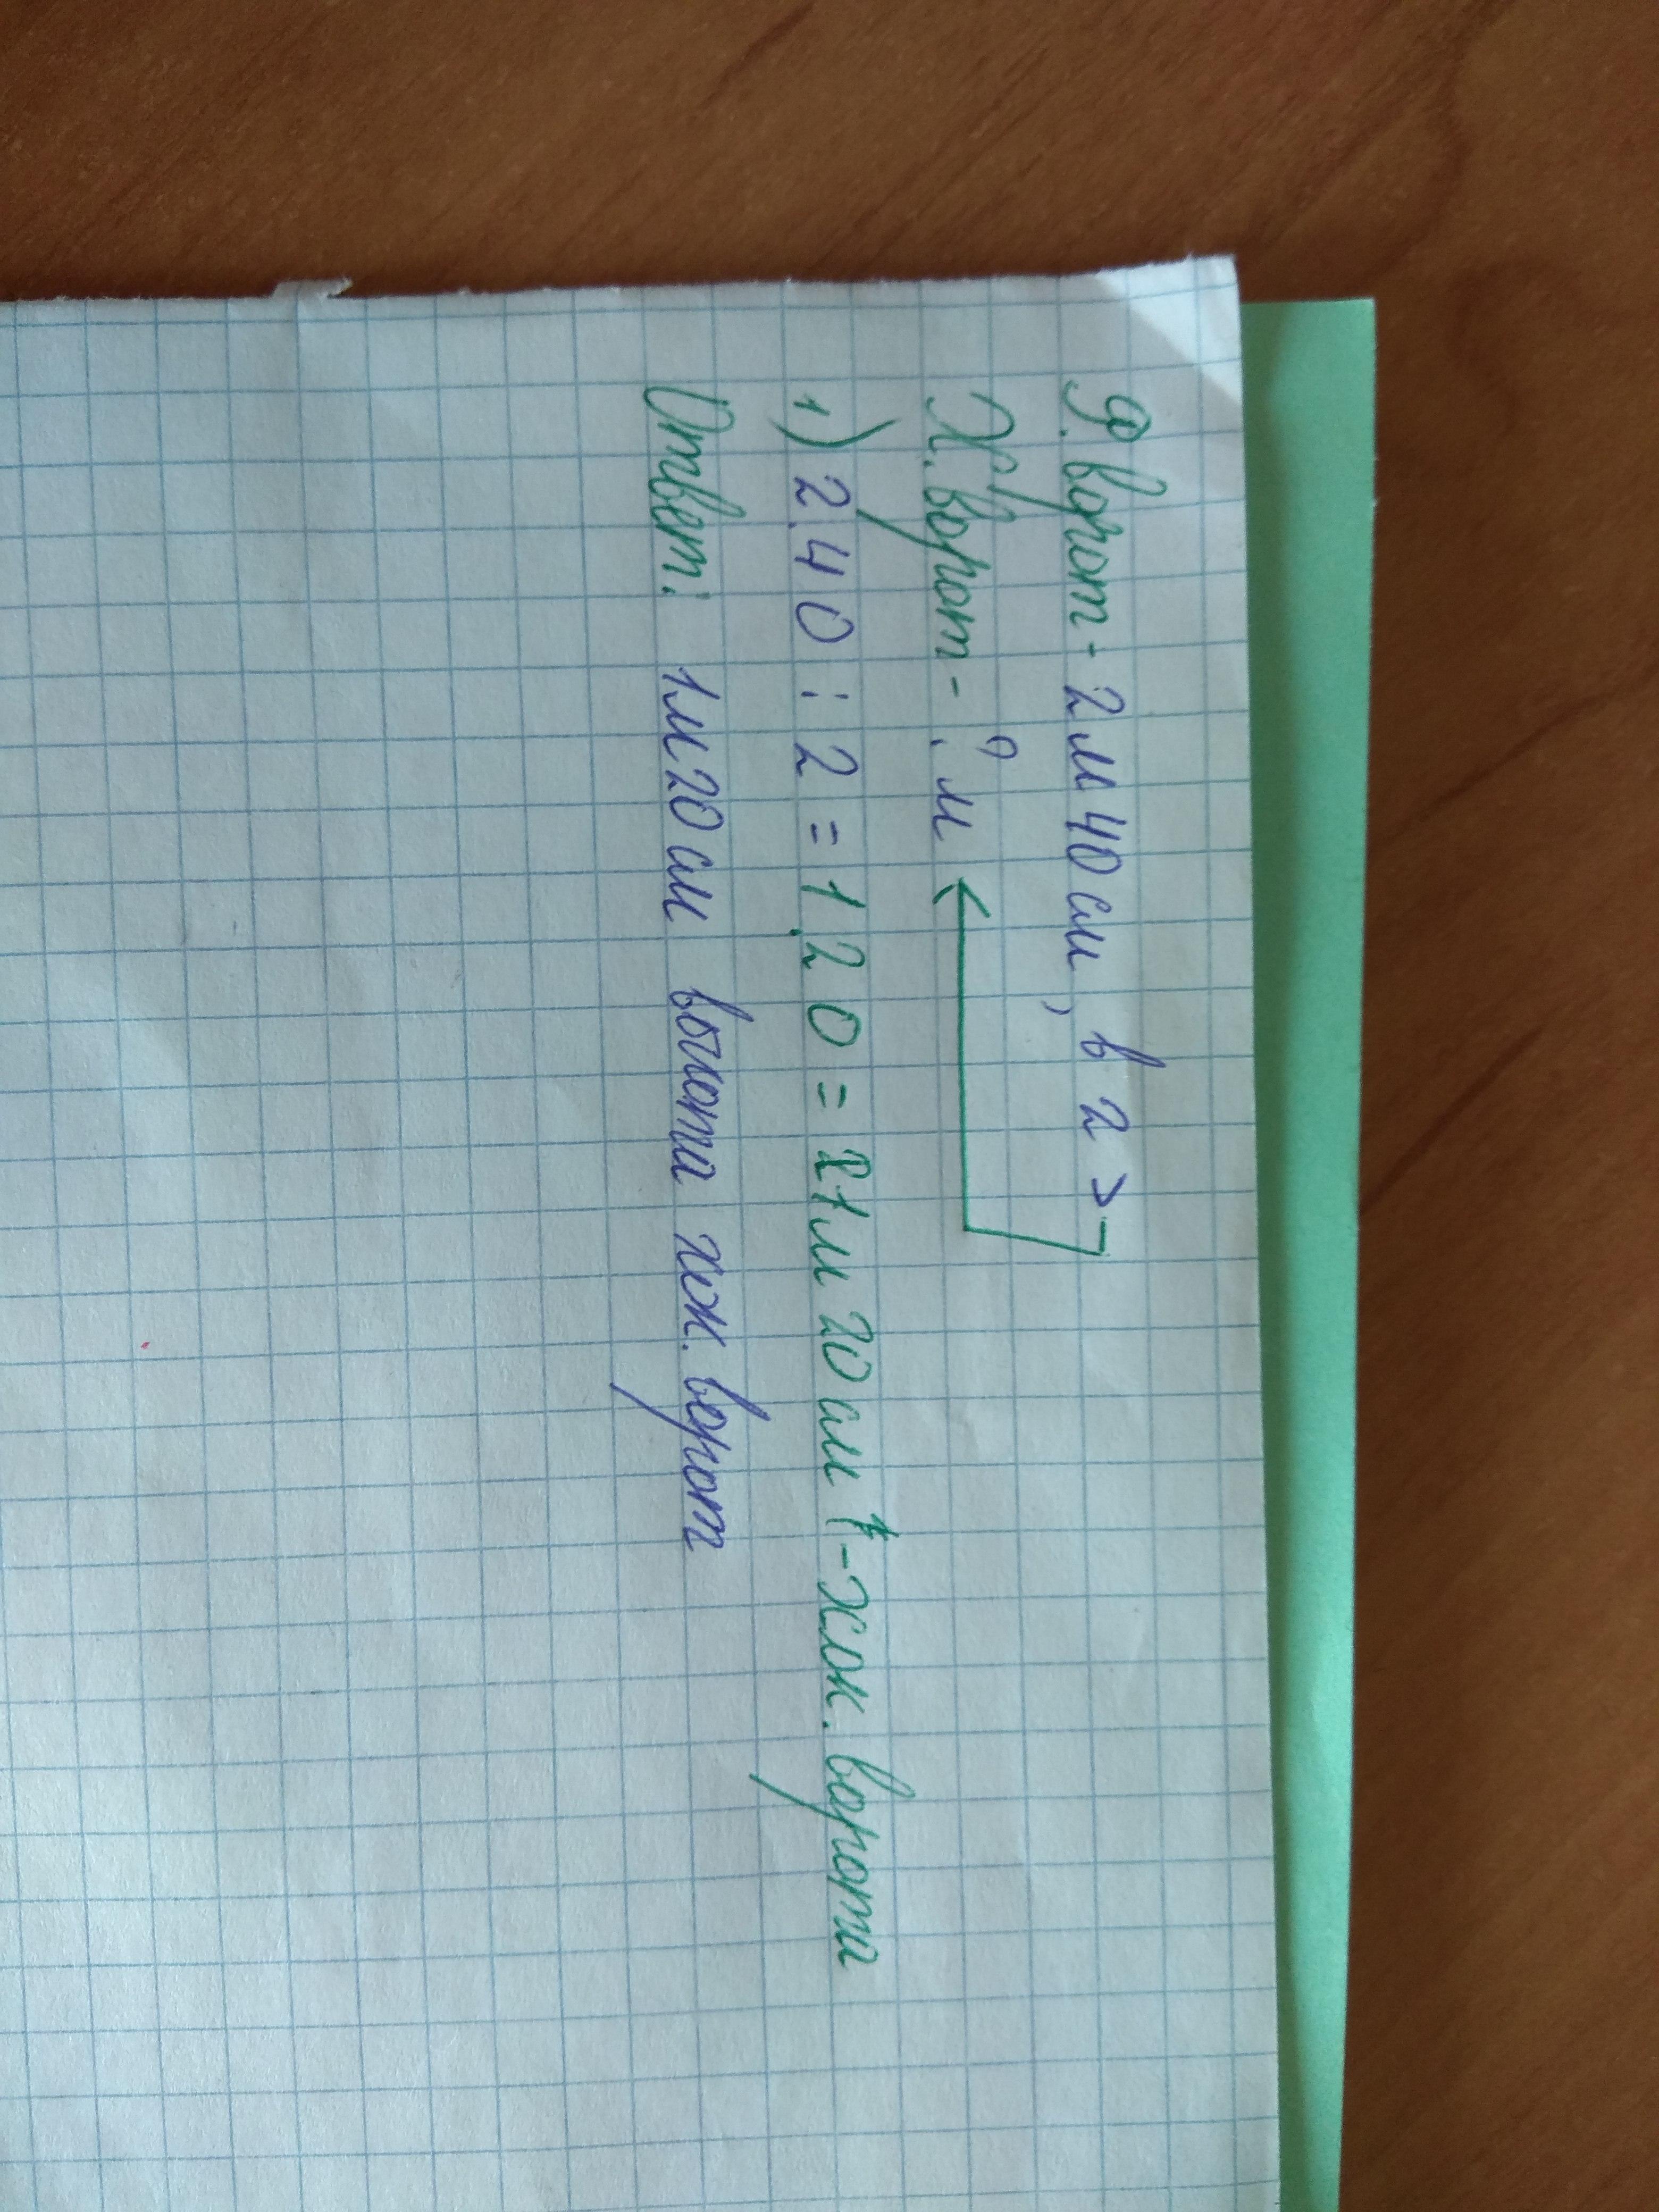 Ф. ворот - 2 м 40 см, в 2 >
Х. ворот - ? м
1) 2.40 : 2 = 1.20 = 1 м 20 см - хок. ворота
Ответ: 1м 20 см высота хок. ворот